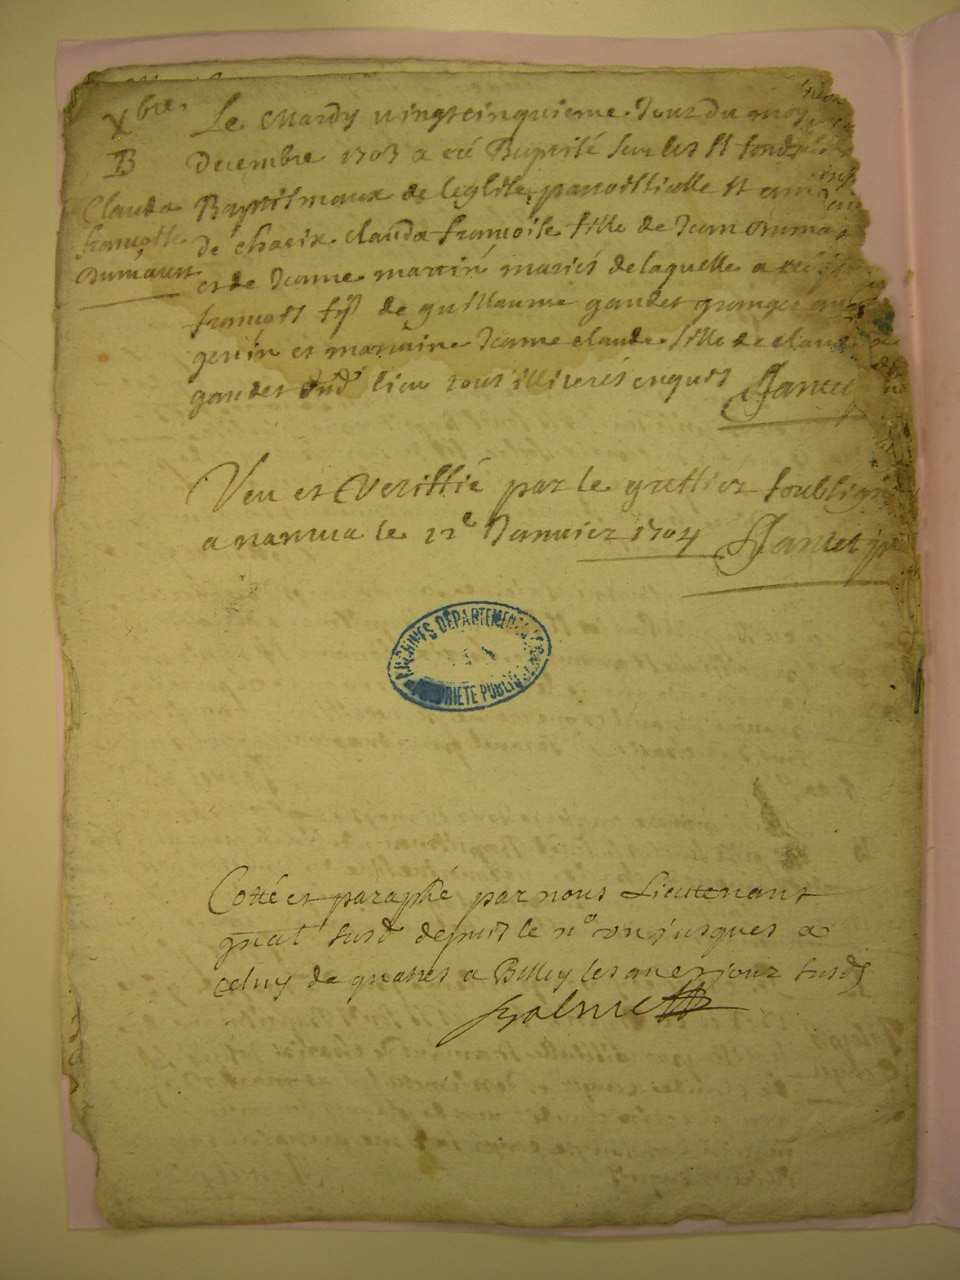 Xbre.
B
Claudа
françoise
Dumarest
Le Mardy vingtcinquieme Jour du mois
Decembre 1703 a eté Baptisé sur les st fonds
Baptismaux de leglise parroissielle st
de chazix clauda françoise fille de Jean Dumar
et de Jeanne martin mariés de laquelle a eté
françois fils de guillaume gandet granger
genin et marraine Jeanne claude fille de claude
gandet dud lieu tous illiterés enquis Jantet
Veu et veriffié par le greffier soubsigné
a nantua le 22e Janvier 1704 Jantet
ARCHIVES DÉPARTEMENTALES DE L'AIN
PROPRIETE PUBLIQUE
Cotté et paraphé par nous Lieutenant
gnal susd depuis le n° un jusques a
celuy de quattres a Belley les an et jour susds